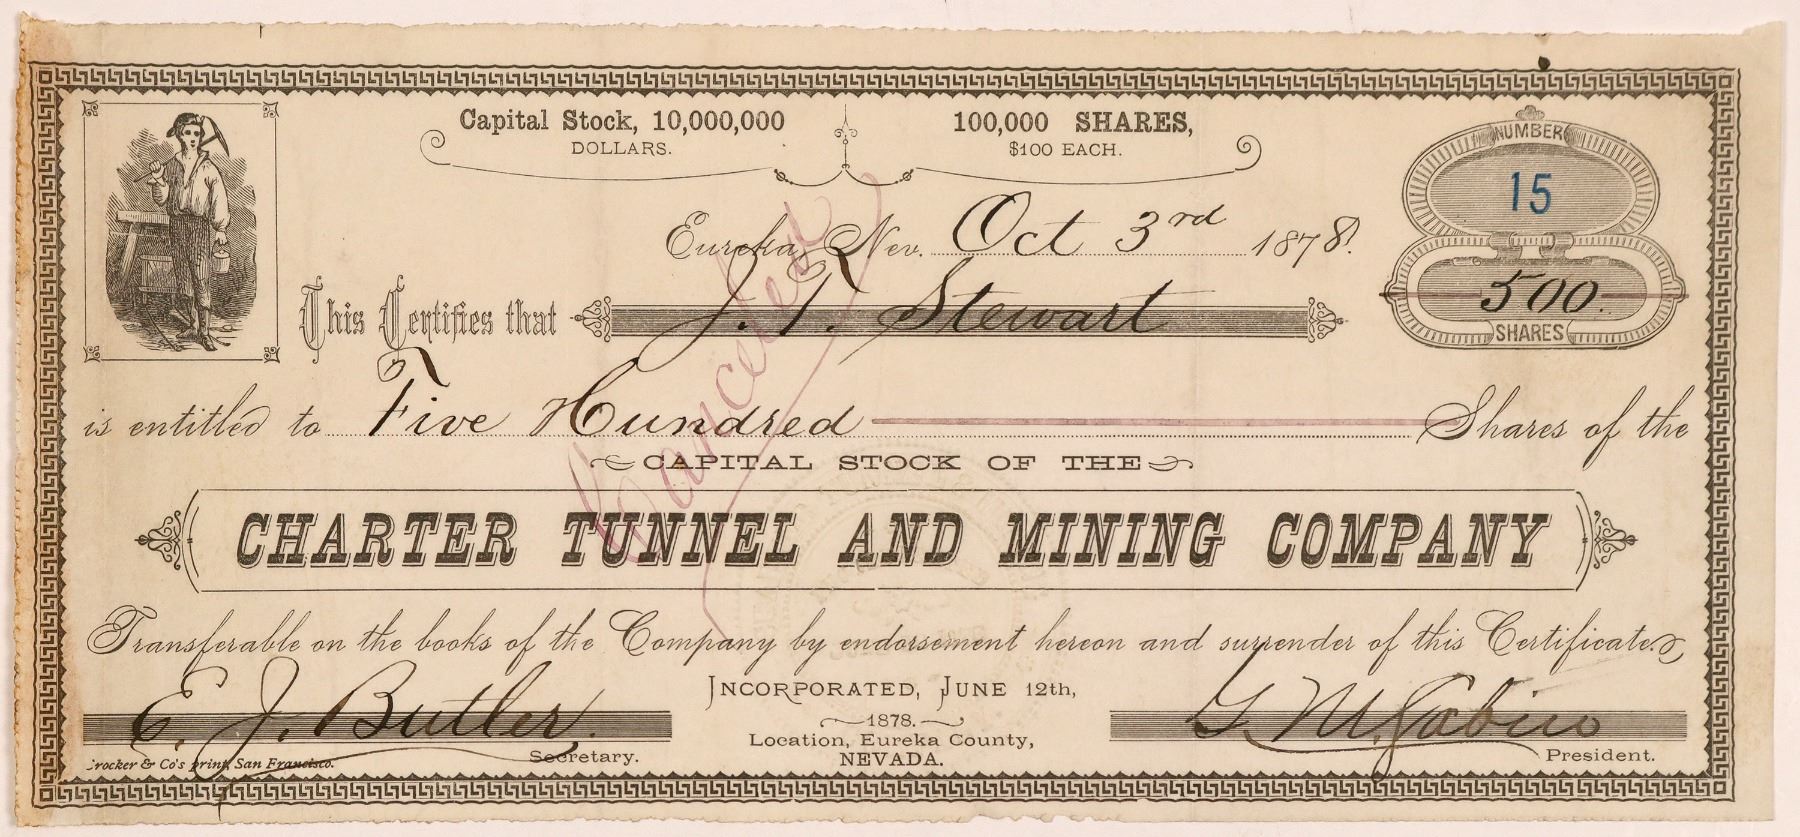 Capital Stock, 10,000,000
DOLLARS.
100,000 SHARES,
$100 EACH.
NUMBER
15
500.
SHARES
Eureka, Nev. Oct 3rd 1878.
This Certifies that J. T. Stewart
is entitled to Five Hundred Shares of the
CAPITAL STOCK OF THE
CHARTER TUNNEL AND MINING COMPANY
Transferable on the books of the Company by endorsement hereon and surrender of this Certificate.
Cancelled
E. J. Butler.
Secretary.
INCORPORATED, JUNE 12th,
1878.
Location, Eureka County,
NEVADA.
G. W.
President.
rocker & Co's print, San Francisco.